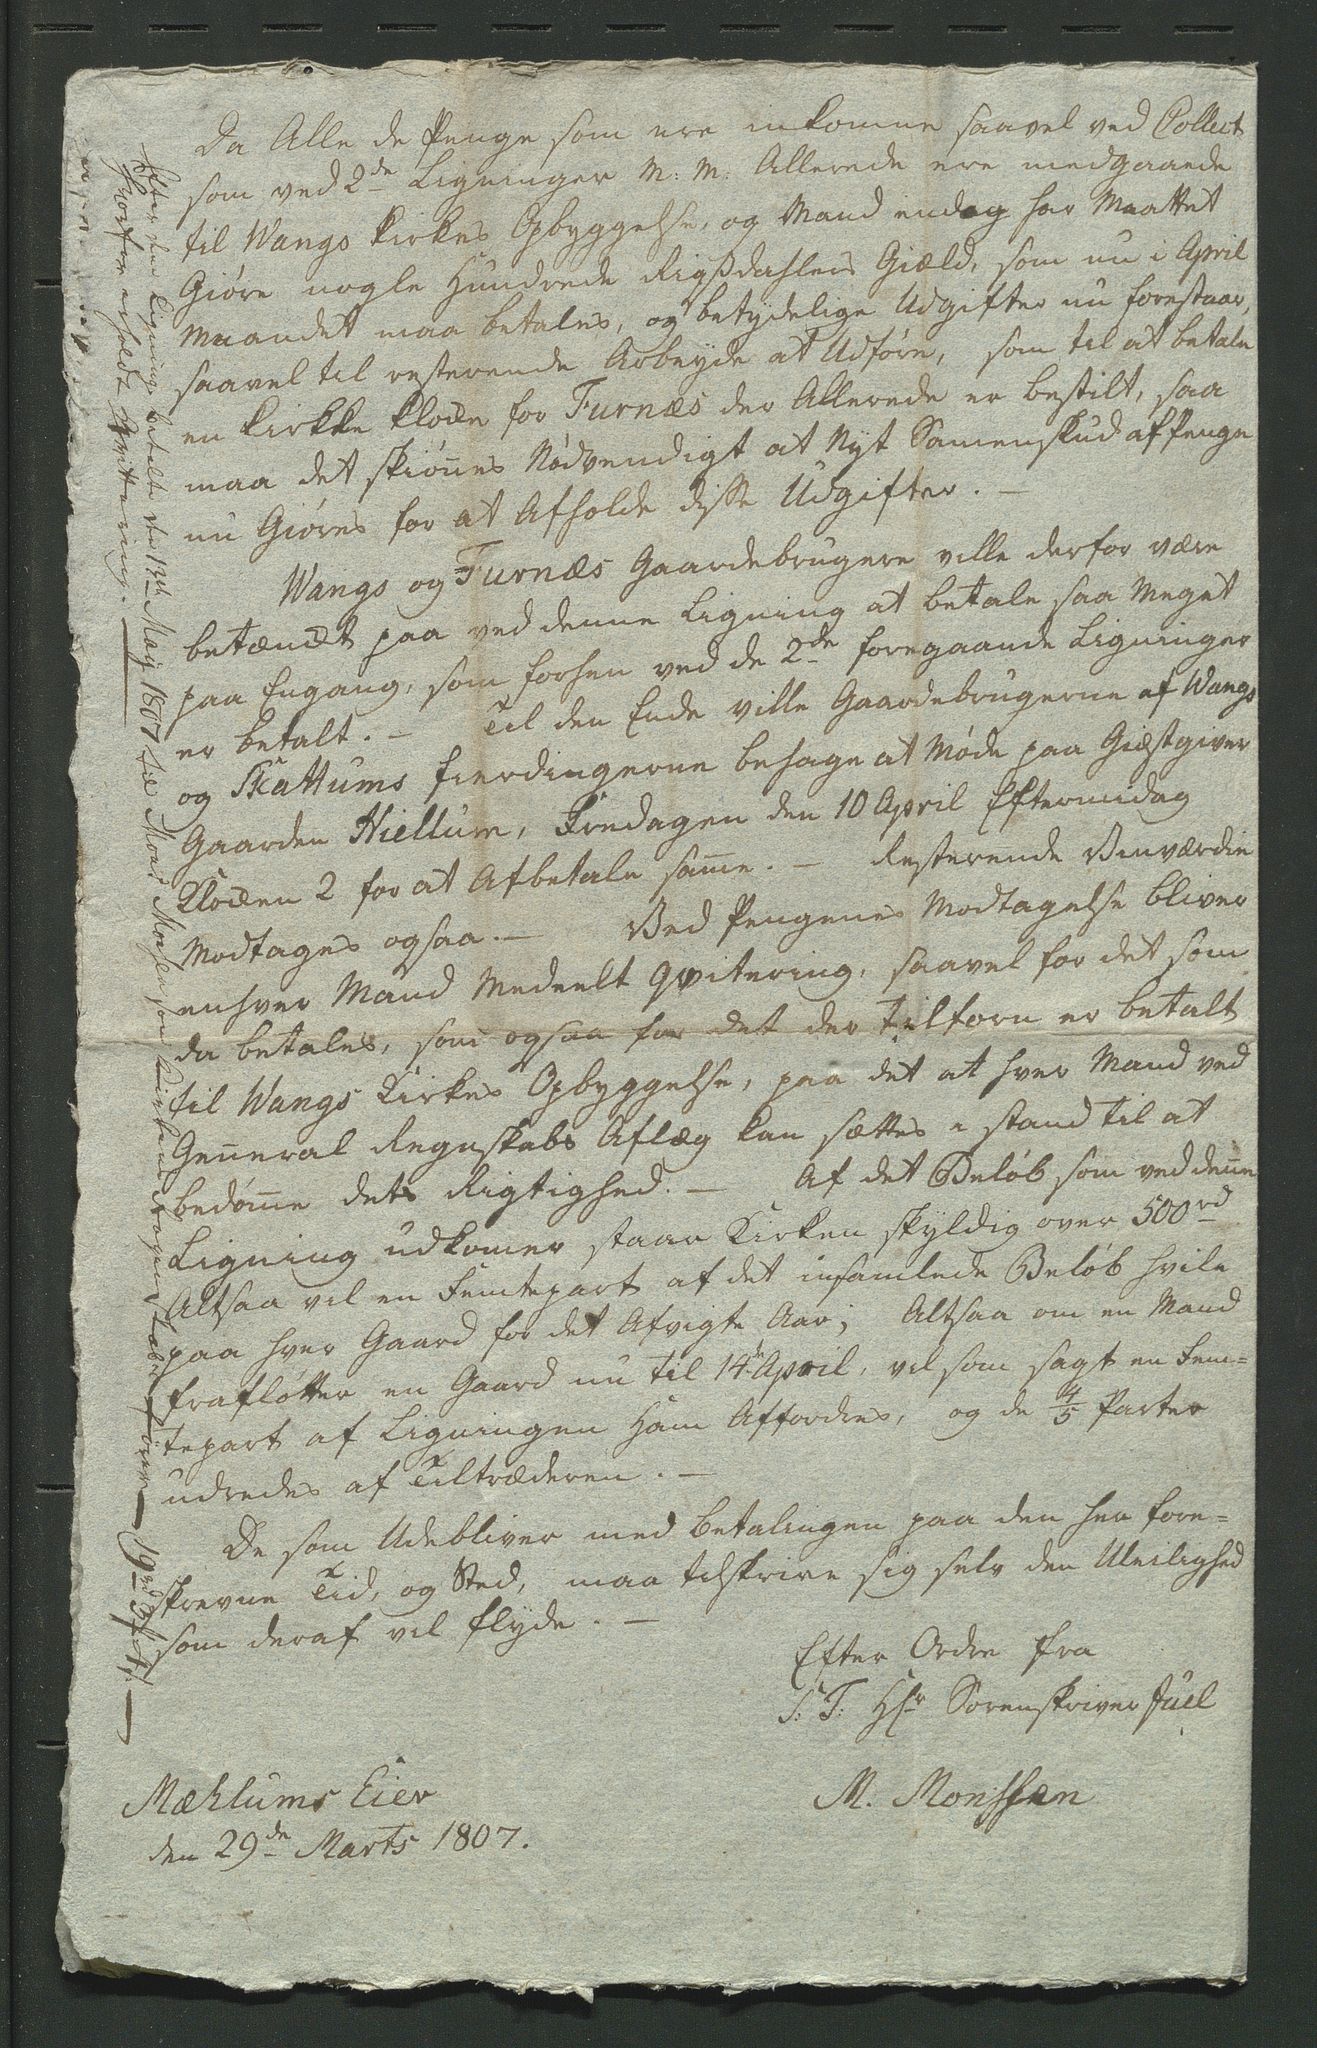 Da Alle de Penge som ere inkomne saavel ved Collect
som ved 2de Ligninger m: m: Allerede ere medgaaede
til Wangs Kirkes Opbyggelse, og Mand endog har Maattet
Giøre nogle Hundrede Rigsdahlers Giæld, som nu i April
Maanedet maa betales, og betydelige Udgifter nu forestaar,
saavel til resterende Arbeyde at Udføre, som til at betale
en Kirkke Klocke for Furnæs der Allerede er bestilt, saa
maa det skiønnes Nødvendigt at Nyt Samenskud af Penge
nu Giøres for at Afholde disse Udgifter. —
Wangs og Furnæs Gaardebrugere ville derfor være
betænckt paa ved denne Ligning at betale saa Meget
paa Engang, som forhen ved de 2de foregaande Ligninger
er betalt. — Til den Ende ville Gaardebrugerne af Wangs
og Skattums fierdingerne behage at Møde paa Giæstgiver
Gaarden Hiellum, Fredagen den 10 April Eftermidag
Klocken 2 for at Afbetale same. — Resterende
Modtages ogsaa. — Ved Pengenes Modtagelse bliver
enhver Mand Medeelt Qvitering, saavel for det som
da betales, som ogsaa for det der tilforn er betalt
til Wangs Kirkes Opbyggelse, paa det at hver Mand ved
General Regnskabs Aflæg kan sættes i stand til at
bedøme dets Rigtighed. — Af det Beløb som ved denne
Ligning udkomer staar Kirken skyldig over 500 rd
Altsaa vil en Femtepart af det insamlede Beløb hvile
paa hver Gaard for det Afvigte Aar; Altsaa om en Mand
frafløtter en Gaard nu til 14de April, vil som sagt en Fem=
tepart af Ligningen Ham Affordres, og de 4/5 Parter
udredes af Tiltræderen. —
De som Udebliver med betalingen paa den her fore=
skrevne Tid, og Sted, maa tilskrive sig selv den Uleilighed
som deraf vil flyde. —
Efter Ordre fra
S: T: Hr Sorenskriver Juel
M. Monsen
Mæhlums Eier
den 29de Marts 1807.
Efter den Ligning betalte den 13de Maij 1807 til Mons Monsen som Kirkens
hvorfor erholdt Qvittering.